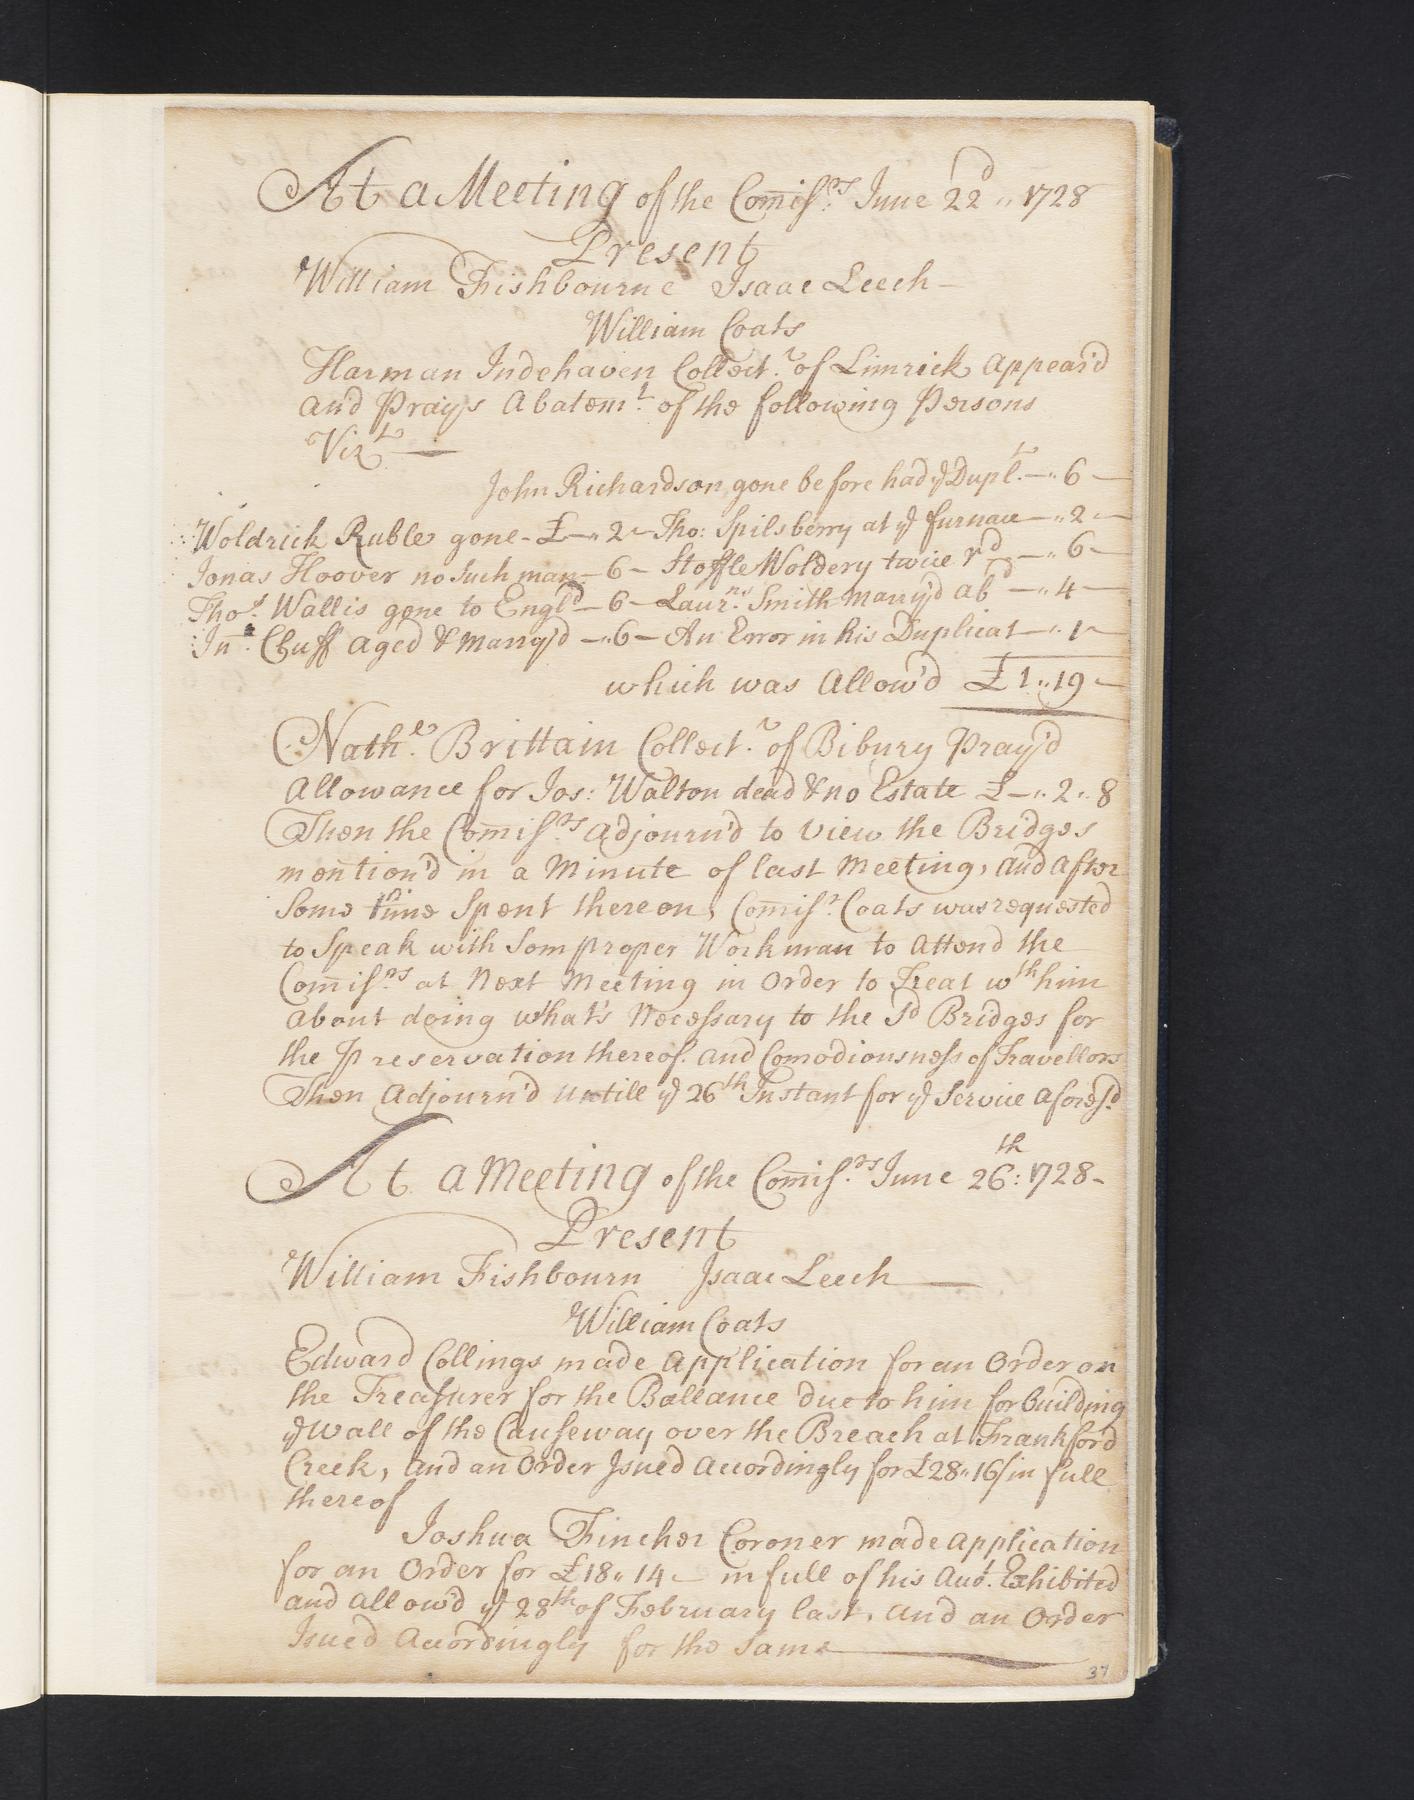 At a Meeting of the Comiss.rs June 22d 1728
Present
William Fishbourne Isaac Leech
William Coats
Harman Indehaven Collect.r of Limrick appear'd
and Prays Abatem.t of the following Persons
Viz.t
John Richardson gone before had ye Dupl.t — 6 —
Woldrick Ruble gone - £ — 2 — Tho: Spilsberry at ye furnace — 2 —
Jonas Hoover no such man — 6 — Stoffle Woldery twice rd — 6 —
Tho.s Wallis gone to Engld — 6 — Laur.ns Smith Marry'd abd — 4 —
Jn.o Chuff aged & marry'd — 6 — An Error in his Duplicat — 1 —
which was Allow'd £1 19 —
Nath.l Brittain Collect.r of Bibury Pray'd
Allowance for Jos: Walton dead & no Estate £ — 2 8
Then the Comiss.rs adjourn'd to view the Bridges
mention'd in a Minute of last Meeting, and after
Some time Spent thereon, Comiss.r Coats was requested
to Speak with Som proper Workman to attend the
Comiss.rs at Next Meeting in Order to Treat wth him
about doing what's Necessary to the Sd Bridges for
the Preservation thereof. and Comodiousness of Travellors
Then Adjourn'd untill ye 26th Instant for ye Service aforesd
At a Meeting of the Comiss.rs June 26th: 1728
Present
William Fishbourn Isaac Leech
William Coats
Edward Collings made application for an Order on
the Treasurer for the Ballance due to him for building
ye Wall of the Causeway over the Breach at Frankford
Creek, and an Order Issued accordingly for £28 16/ in full
thereof
Joshua Fincher Coroner made application
for an Order for £18 14 — in full of his Acct. Exhibited
and allow'd ye 28th of February last. and an Order
Issued Accordingly for the Same
37